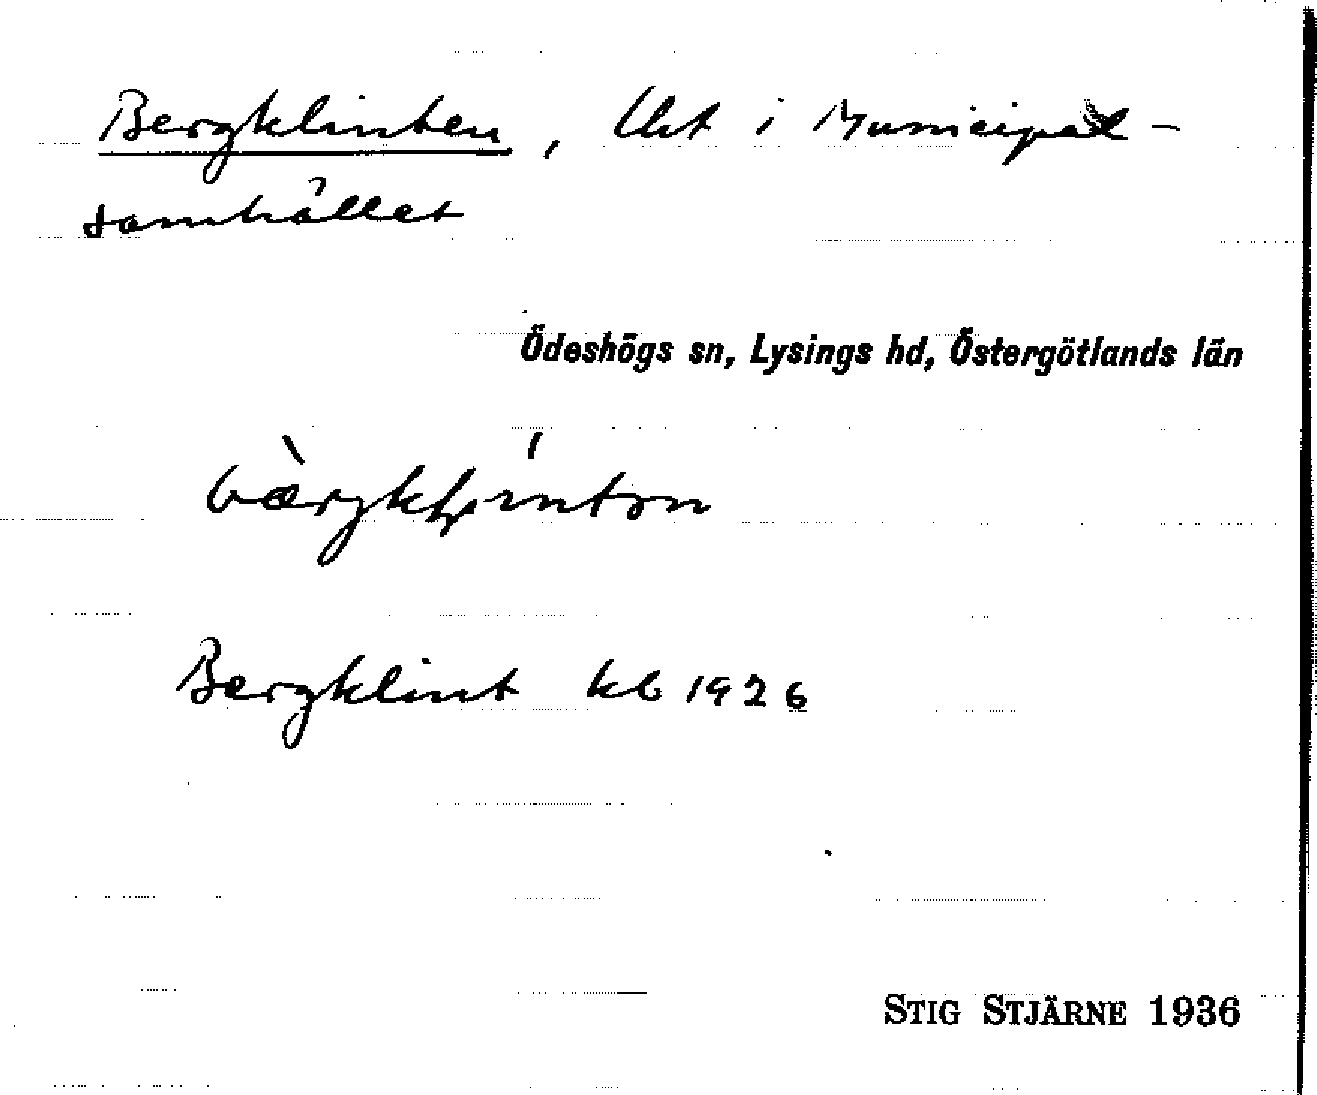 Bergklinten, Lht i Municipal-
samhället
Ödeshögs sn, Lysings hd, Östergötlands län
Bergklint kb 1926
STIG STJÄRNE 1936